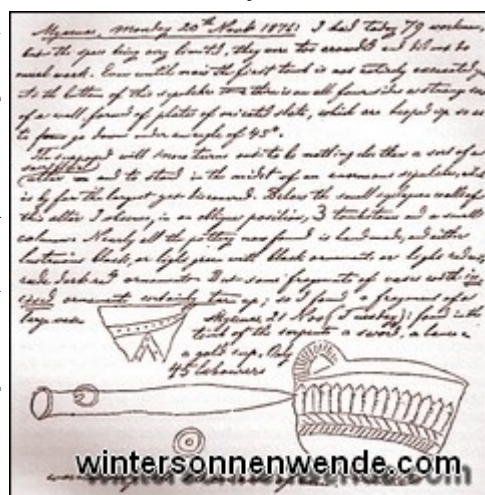 Mycenae, Monday 20th Novbr 1876: I had today 79 workmen,
but the space being very limited, they were too crowded and did me no
much work. Even until now the first tomb is not entirely excavated
At the bottom of this sepulchre there is on all four sides a strange sort
of a wall, formed of plates of micated slate, which are heaped up so as
to go down under an angle of 45°.
The supposed well now turns out to be nothing else than a sort of a
sacrificial altar and to stand in the midst of an enormous sepulchre, which
is by far the largest yet discovered. Below the small cyclopean walls of
this altar I observe, in an oblique position, 3 tombstones and a small
column. Nearly all the pottery now found is handmade, and either
lustrous black, or light green with black ornament, or light red with
dark red ornaments. But some fragments of vases with in-
cised ornament certainly turn up; so I found a fragment of a
large vase
Mycenae, 21 Nov (Tuesday): found in the
tomb of the serpent a sword, a lance
a gold cup. Only
45 labourers
wintersonnenwende.com